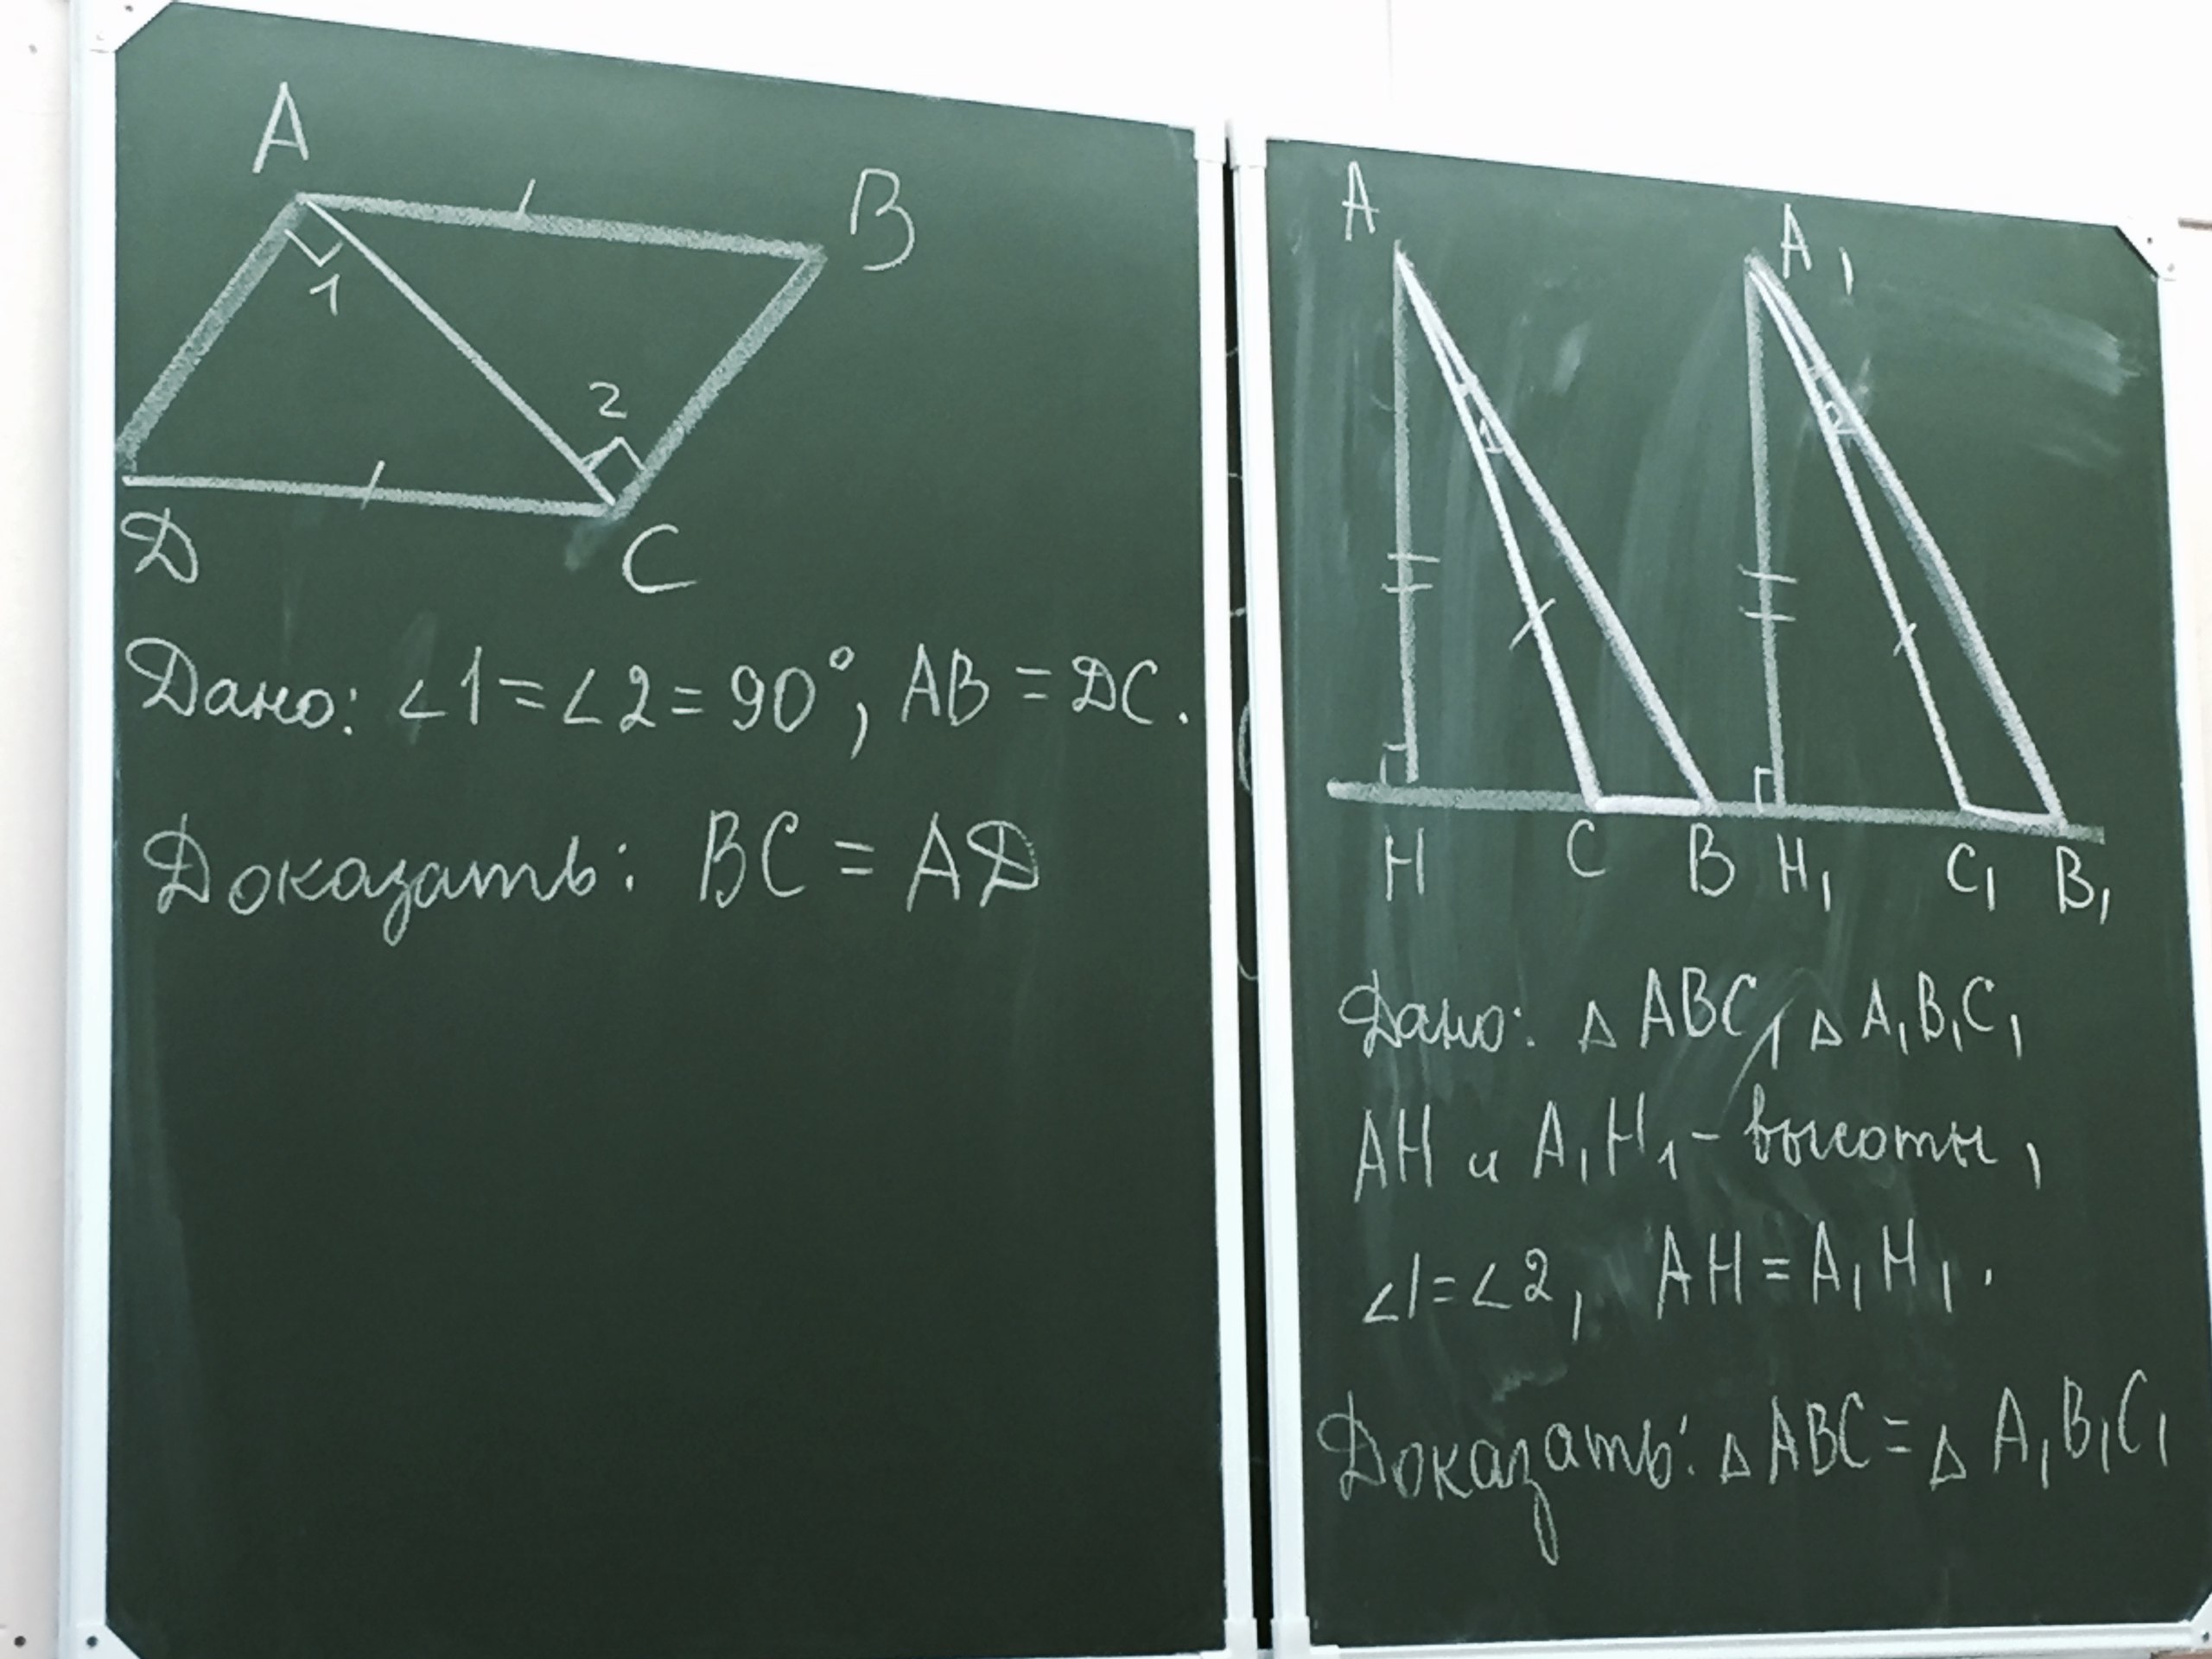 A
B
1
2
Д
C
Дано: ∠1=∠2=90°, AB = ДC.
Доказать: BC = AД
A
A₁
1
2
H
C
B
H₁
C₁
B₁
Дано: △ ABC, △ A₁B₁C₁
AH и A₁H₁ - высоты,
∠1=∠2, AH=A₁H₁.
Доказать: △ ABC = △ A₁B₁C₁